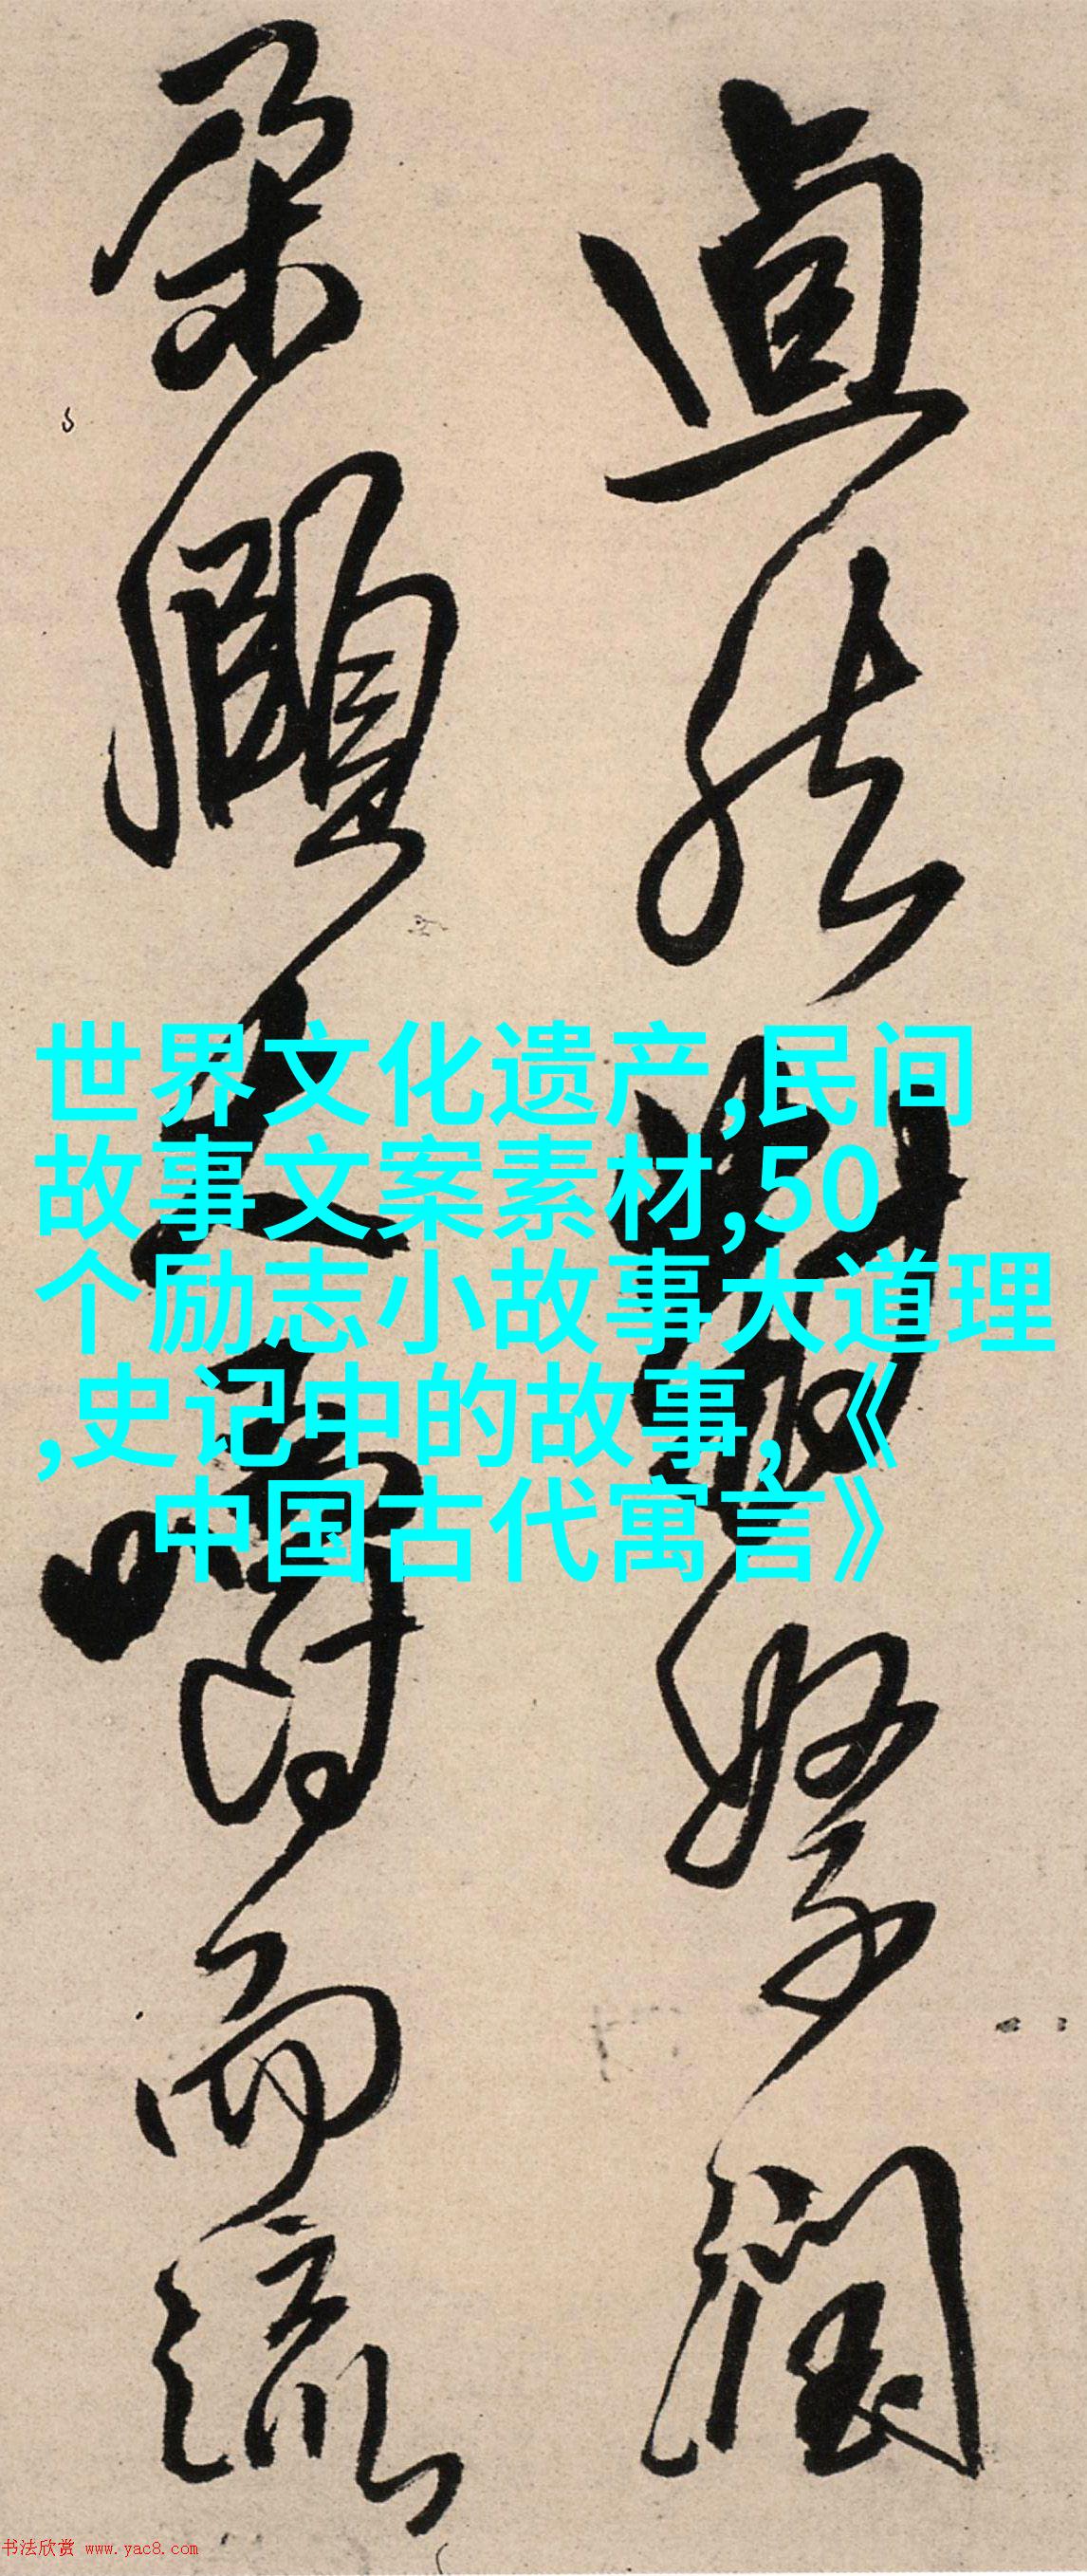 潤
朵頤嚼而流
世界文化遗产,民间
故事文案素材,50
个励志小故事大道理
,史记中的故事,《
中国古代寓言》
书法欣赏 www.yac8.com